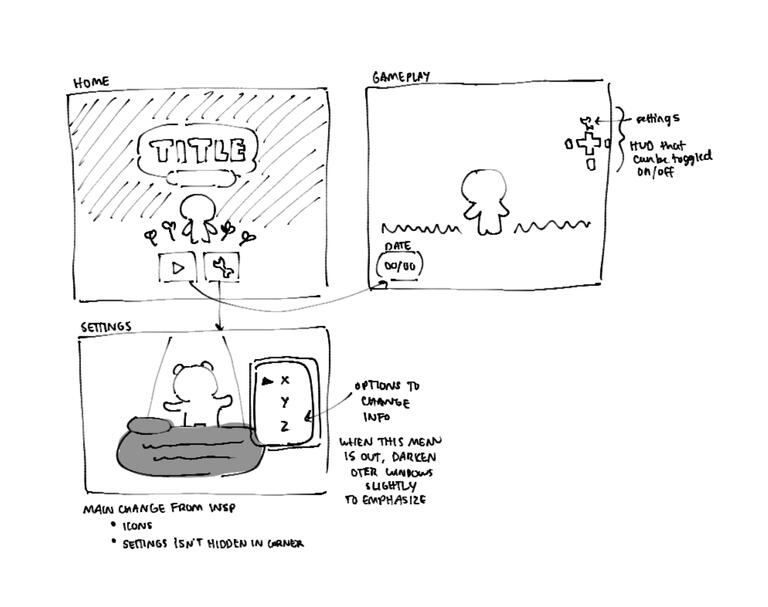 HOME
TITLE
GAMEPLAY
settings
HUD that
can be toggled
on/off
DATE
00/00
SETTINGS
X
Y
Z
OPTIONS TO
CHANGE
INFO
WHEN THIS MENU
IS OUT, DARKEN
OTER WINDOWS
SLIGHTLY
TO EMPHASIZE
MAIN CHANGE FROM INSP
• ICONS
• SETTINGS ISN'T HIDDEN IN CORNER